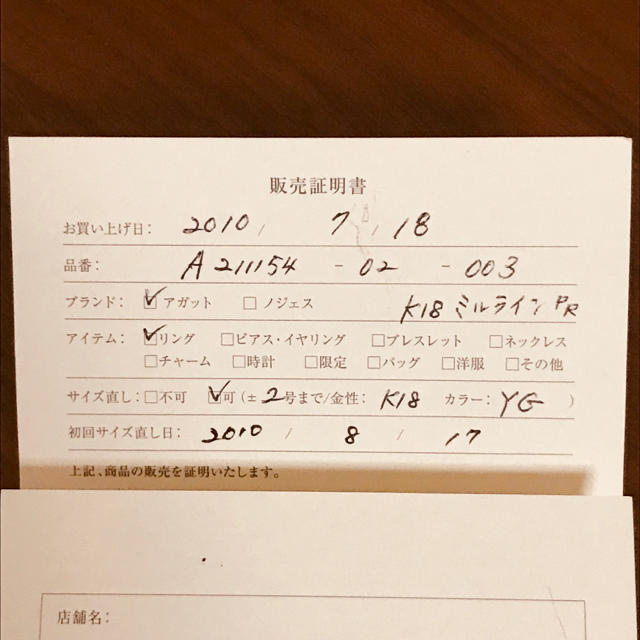 販売証明書
お買い上げ日: 2010 / 7 / 18
品番: A 211154 - 02 - 003
ブランド: ☑アガット □ノジェス K18 ミルライン PR
アイテム: ☑リング □ピアス・イヤリング □ブレスレット □ネックレス
□チャーム □時計 □限定 □バッグ □洋服 □その他
サイズ直し: □不可 ☑可(± 2号まで/金性: K18 カラー: YG )
初回サイズ直し日: 2010 / 8 / 17
上記、商品の販売を証明いたします。
店舗名: